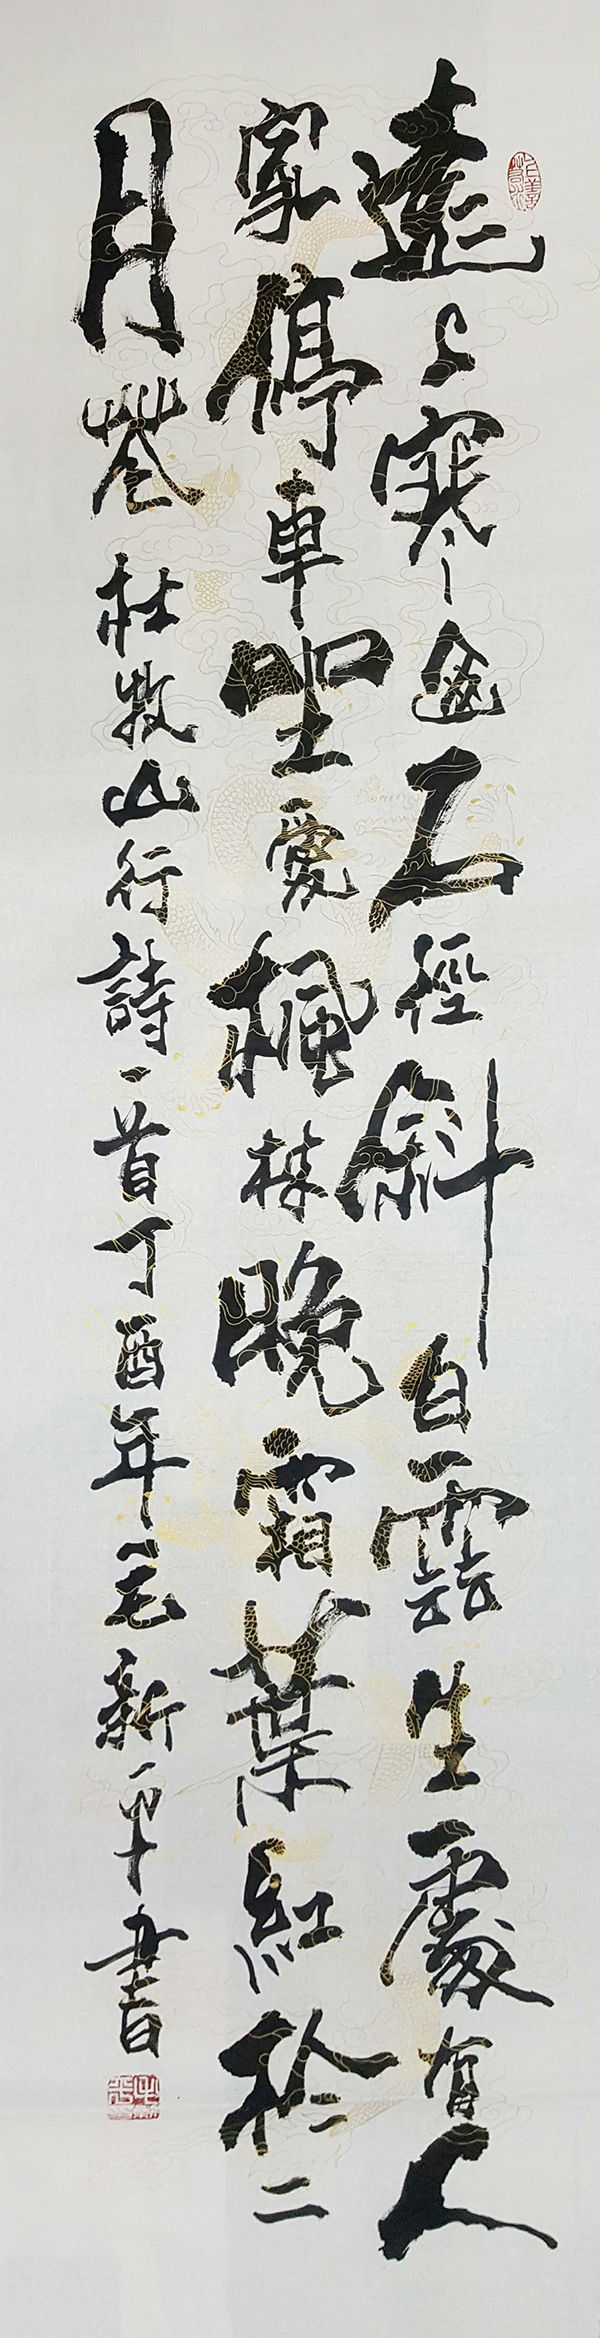 遠上寒山石徑斜白雲生處有人
家停車坐愛楓林晚霜葉紅於二
月花 杜牧山行詩一首丁酉年毛新平書